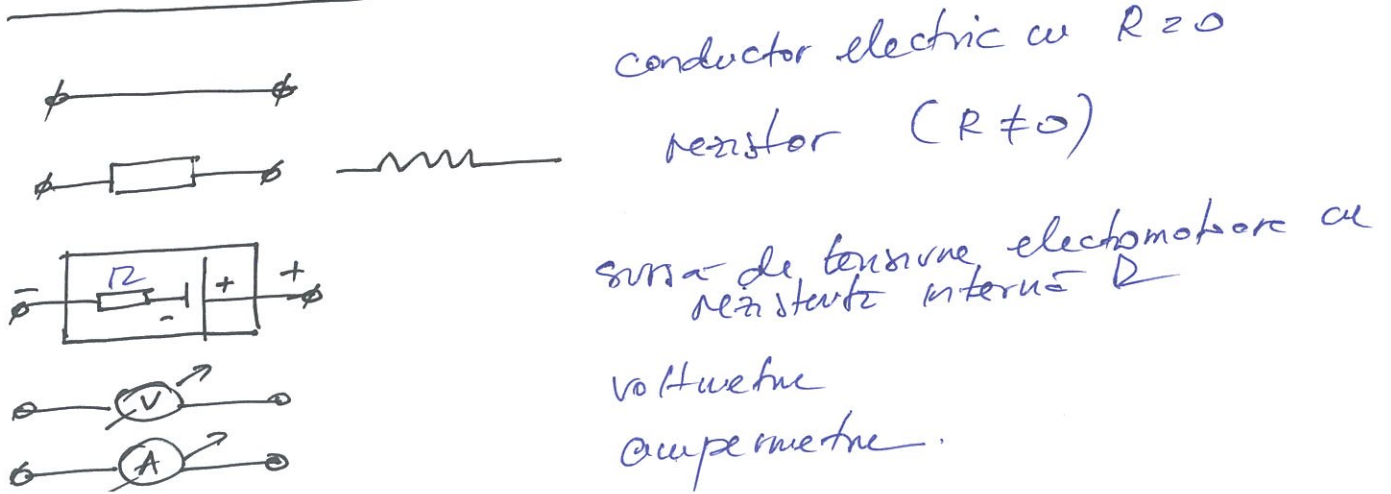 conductor electric cu R=0
rezistor (R≠0)
r
- + - +
sursa de tensiune electromotoare cu
rezistență internă r
V
voltmetre
A
ampermetre.